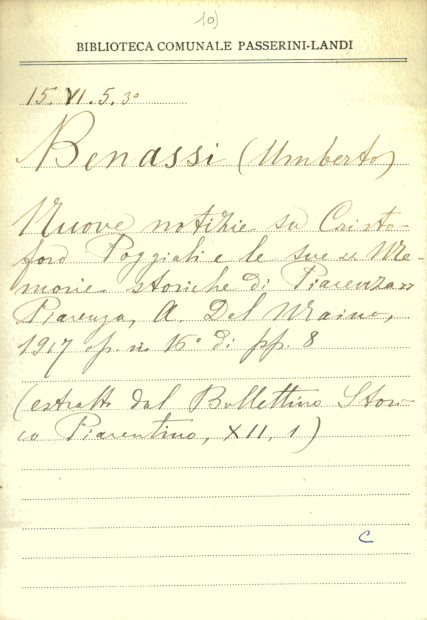 10)
BIBLIOTECA COMUNALE PASSERINI-LANDI
15. VI. 5. 3º
Benassi (Umberto)
Nuove notizie su Cristo-
foro Poggiali e le sue « Me-
morie storiche di Piacenza »
Piacenza, A. Del Maino,
1917 op. in 16º di pp. 8
(estratto dal Bollettino Stori-
co Piacentino, XII, 1)
C